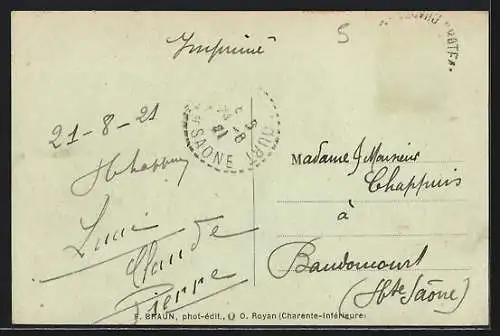 Imprimé
5
21-8-21
HChappuis
Lucie
Claude
Pierre
Hte SAONE
Madame & Monsieur
Chappuis
à
Baudoncourt
(Hte Saône)
F. BRAUN, phot-édit., O. Royan (Charente-Inférieure)